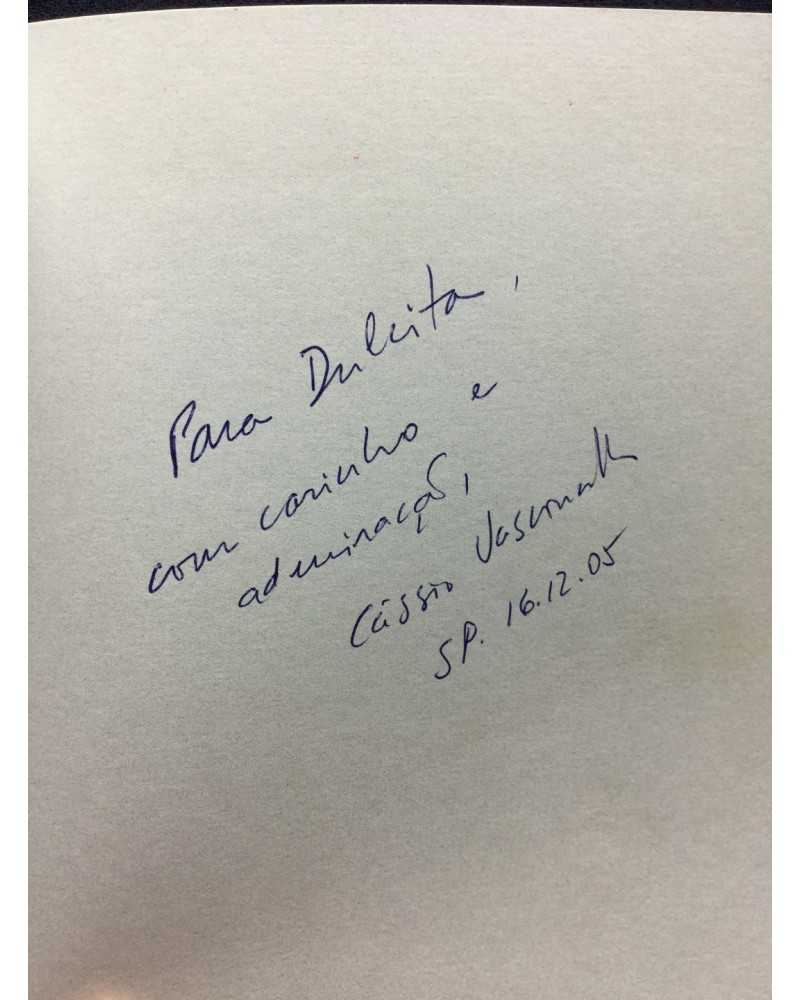 Para Dulcita,
com carinho e
admiração,
Cássio Vasconcellos
SP. 16.12.05